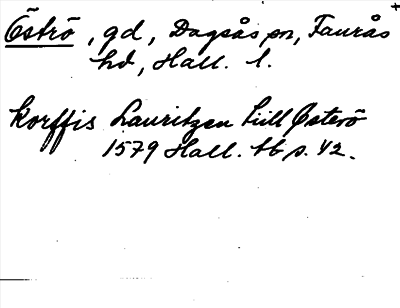 Öströ, gd, Dagsås sn, Faurås
hd, Hall. l.
Korffis Lauritzen till Østerö
1579 Hall. bb s. 42.